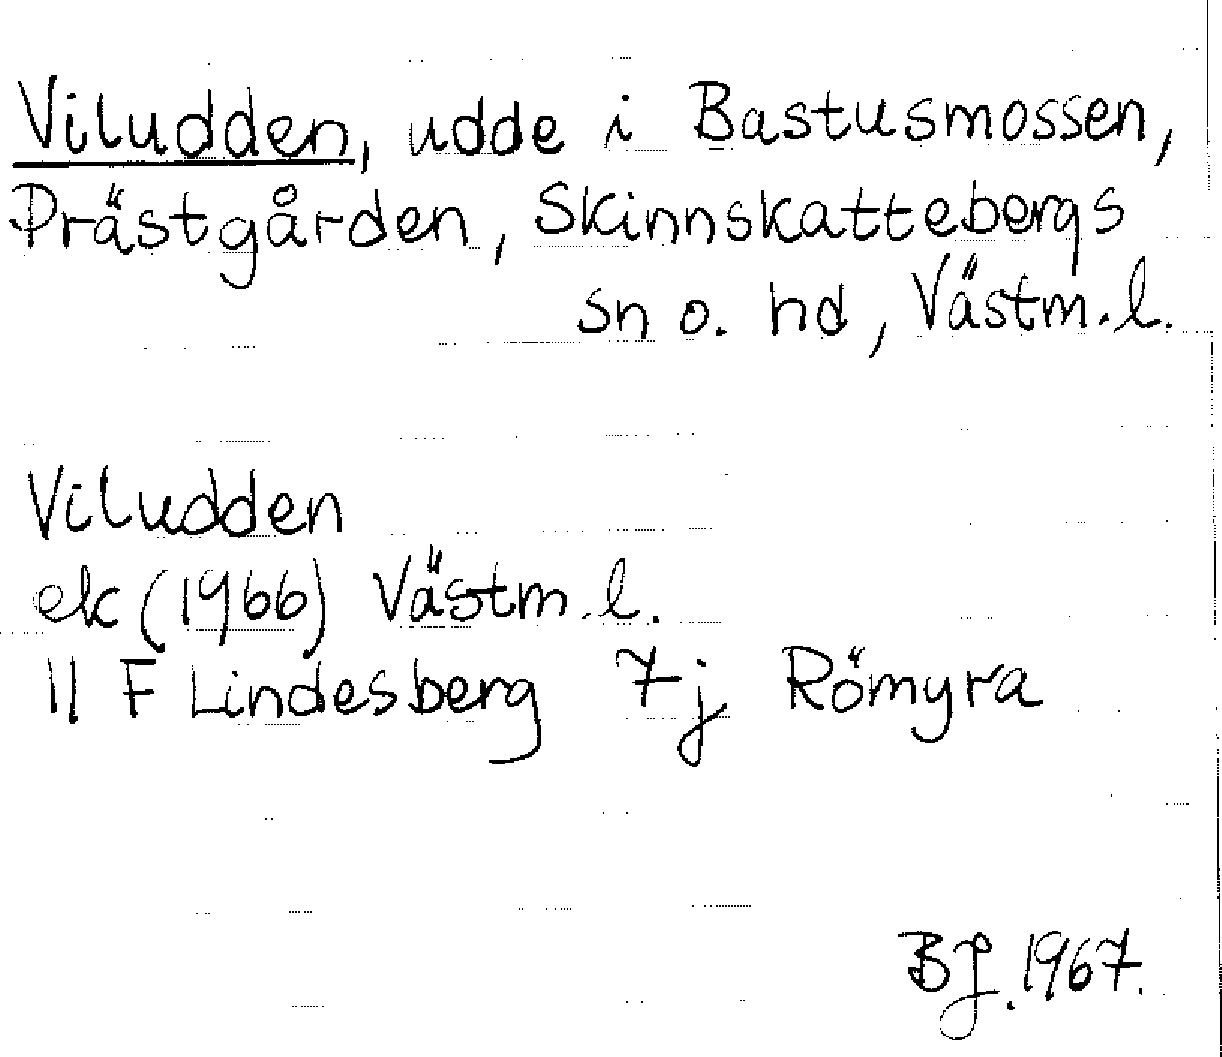 Viludden, udde i Bastusmossen,
Prästgården, Skinnskattebergs
sn o. hd, Västm.l.
Viludden
ek (1966) Västm.l.
11 F Lindesberg 7j Römyra
BJ. 1967.